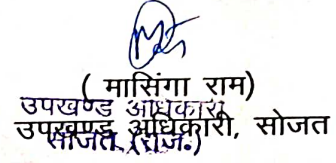 ( मासिंगा राम)
उपखण्ड अधिकारी
उपखण्ड अधिकारी, सोजत
सोजत (राज.)